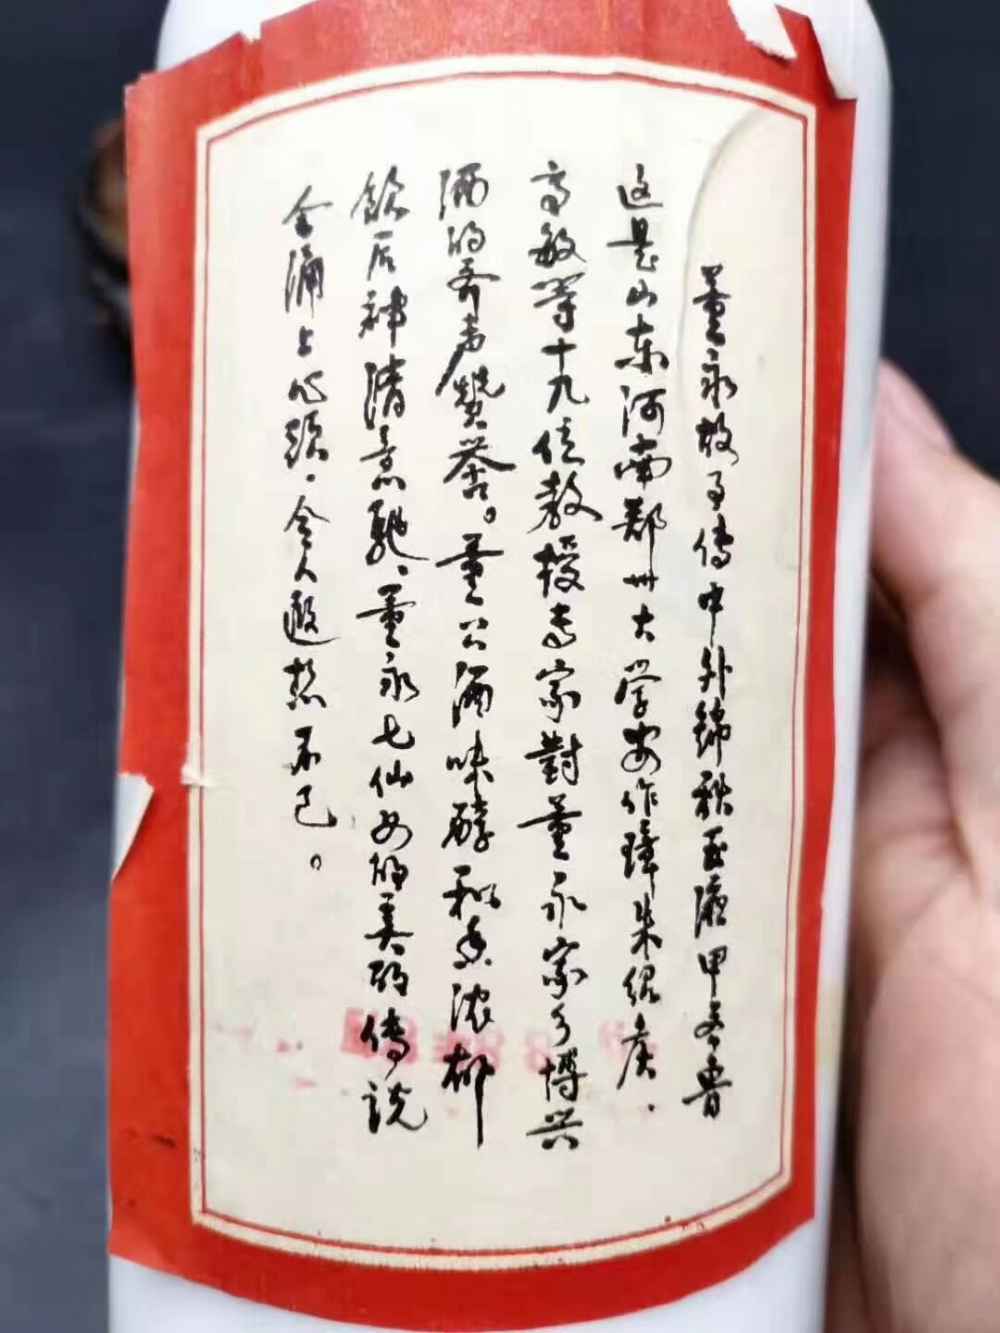 董永故事傳中外锦秋玉液甲齐鲁
这是山东河南郑州大学安作璋朱绍侯、
高敏等十九位教授专家對董永家乡博兴
酒的齐声赞誉。董公酒味醇和香浓郁
饮后神清意驰、董永七仙女的美的傳说
会涌上心头、令人遐想不已。